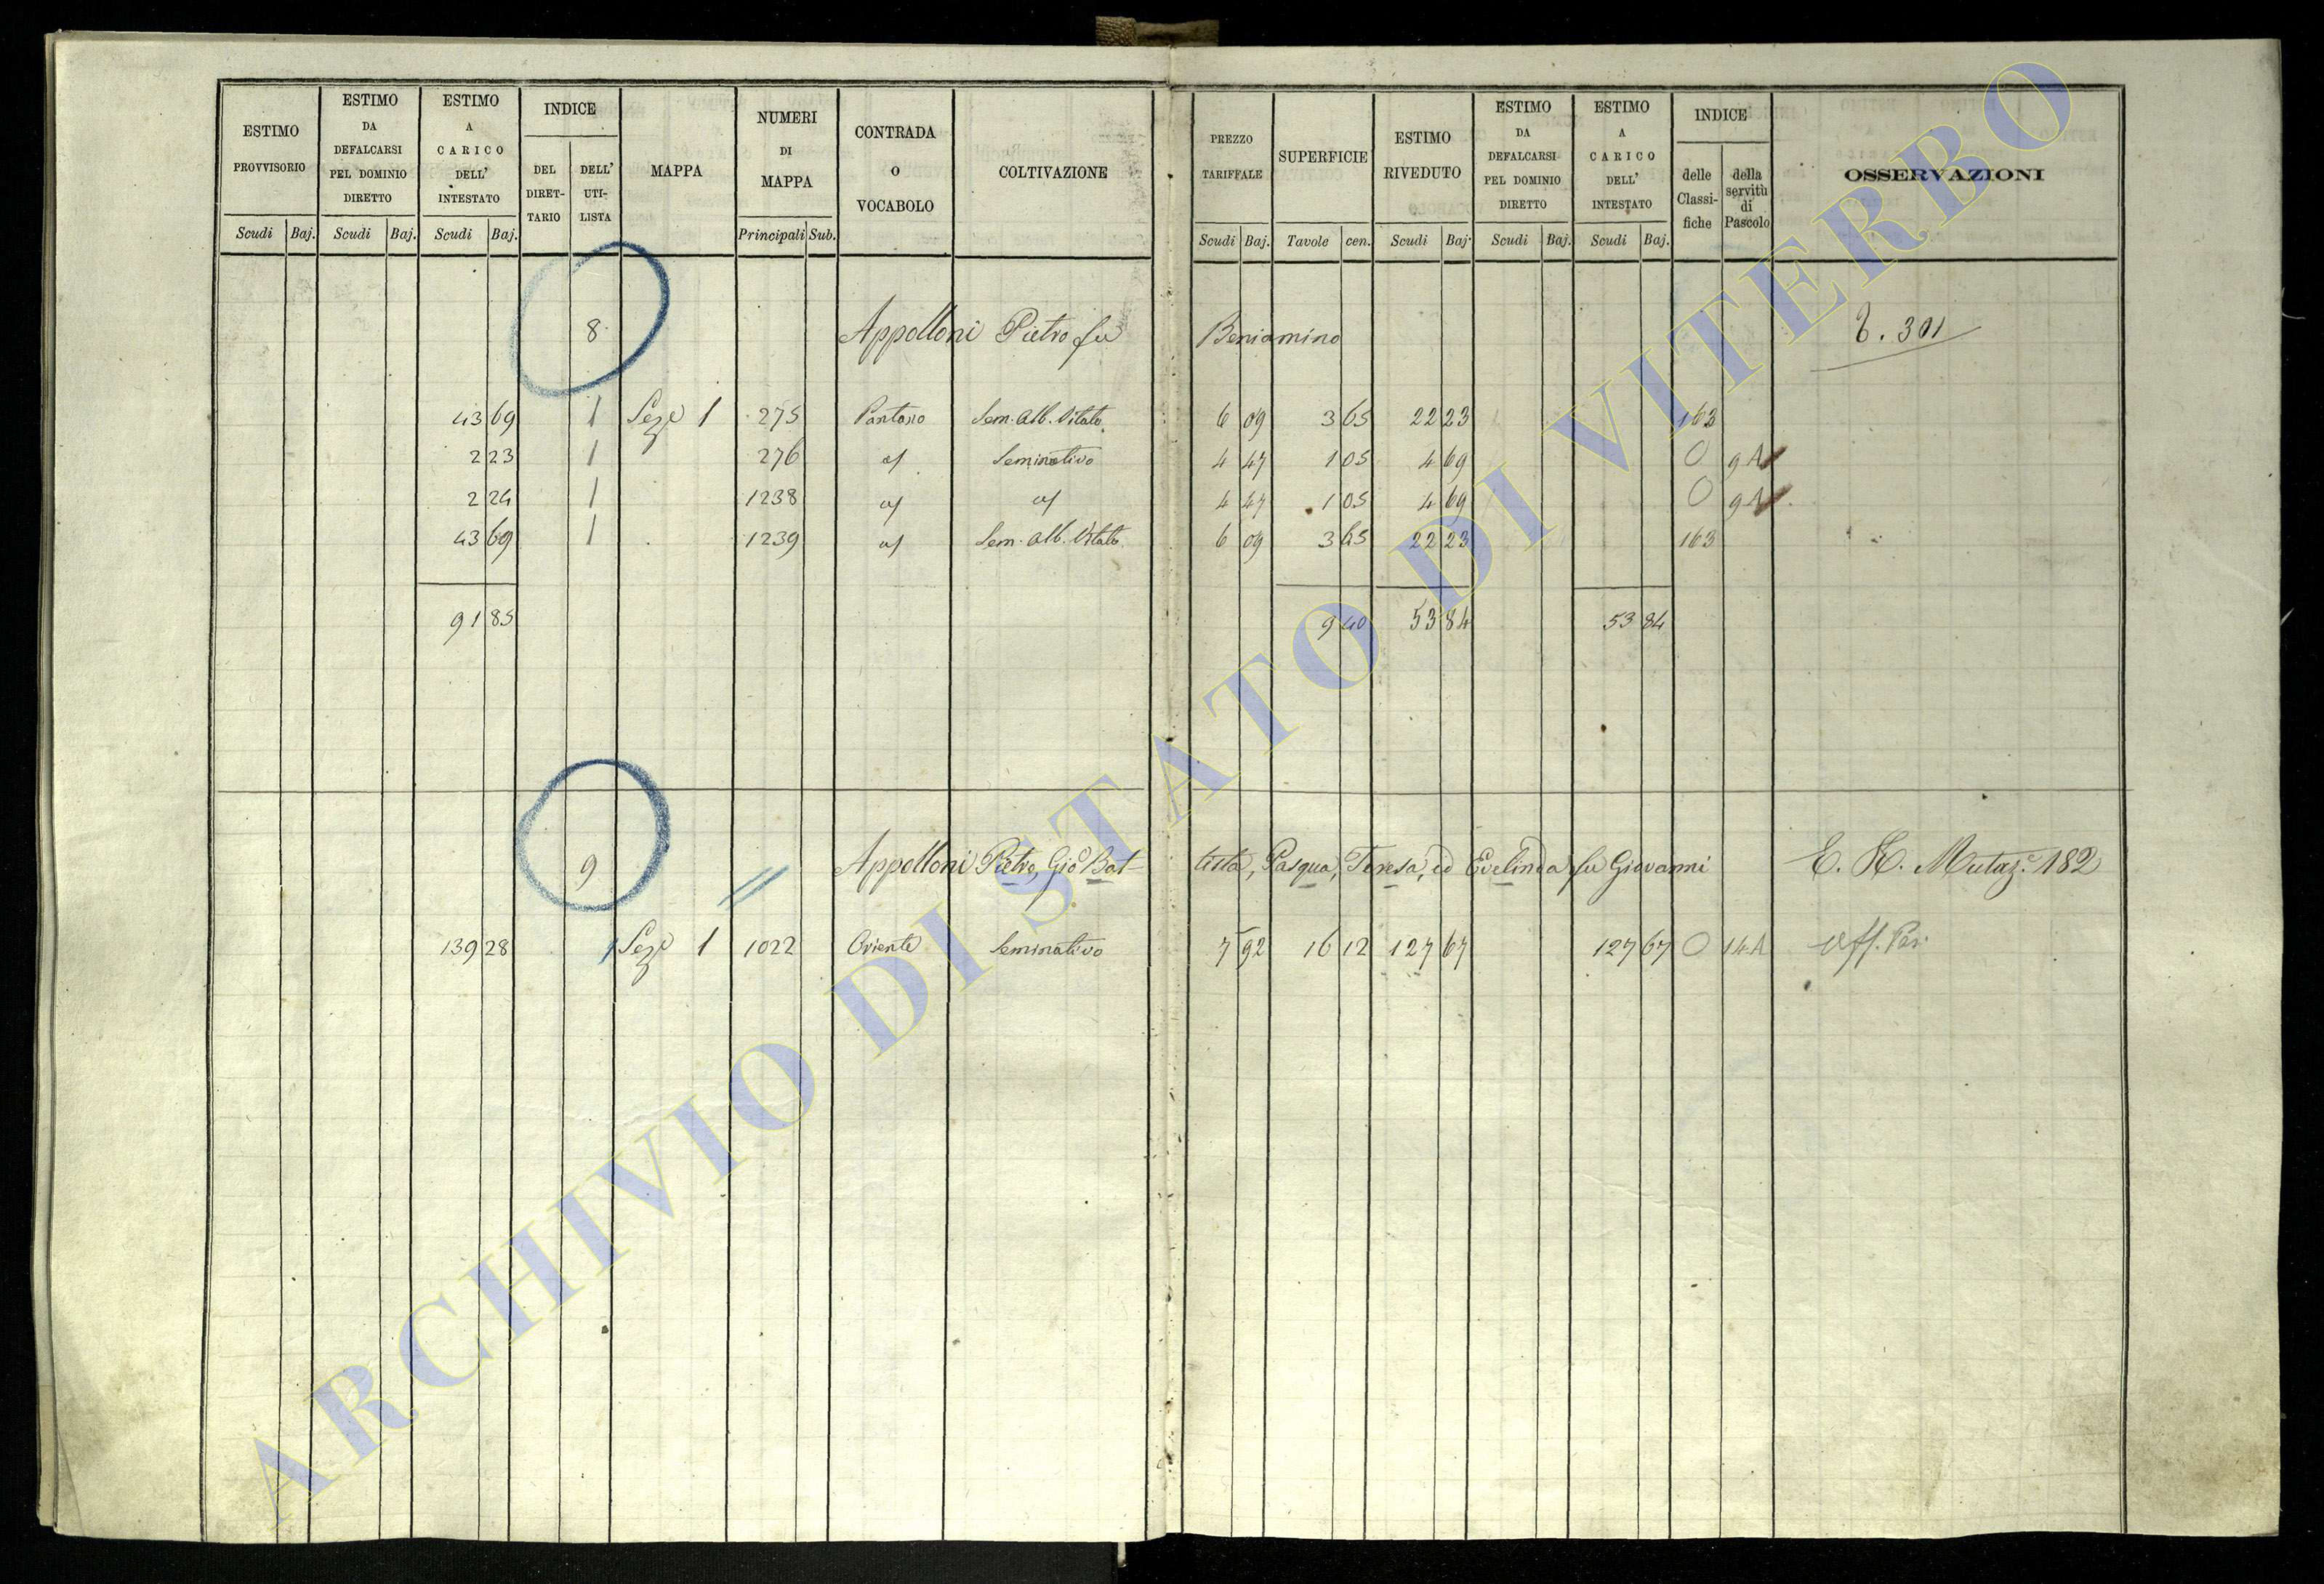 ESTIMO PROVVISORIO
Scudi Baj.
ESTIMO DA DEFALCARSI PEL DOMINIO DIRETTO
Scudi Baj.
ESTIMO A CARICO DELL' INTESTATO
Scudi Baj.
INDICE
DEL DIRET-TARIO
DELL' UTI-LISTA
MAPPA
NUMERI DI MAPPA
Principali Sub.
CONTRADA O VOCABOLO
COLTIVAZIONE
PREZZO TARIFFALE
Scudi Baj.
SUPERFICIE
Tavole cen.
ESTIMO RIVEDUTO
Scudi Baj.
ESTIMO DA DEFALCARSI PEL DOMINIO DIRETTO
Scudi Baj.
ESTIMO A CARICO DELL' INTESTATO
Scudi Baj.
INDICE
delle Classi-fiche
della servitù di Pascolo
OSSERVAZIONI
8 Appolloni Pietro fu Beniamino 301
43 69 1 Seze 1 275 Pantano Sem. alb. Vitato 6 09 3 65 22 23 163
2 23 1 276 Seminativo 4 47 1 05 4 69 0 9A
2 24 1 1238 4 47 1 05 4 69 0 9A
43 69 1 1239 Sem. alb. Vitato 6 09 3 65 22 23 163
91 85 9 40 53 84 53 84
9 Appolloni Pietro, Gio Bat-tista, Pasqua, Teresa, ed Evelinda fu Giovanni Mutaz.e 182
139 28 1 Seze 1 1022 Oriente Seminativo 7 92 16 12 127 67 127 67 0 14A
ARCHIVIO DI STATO DI VITERBO